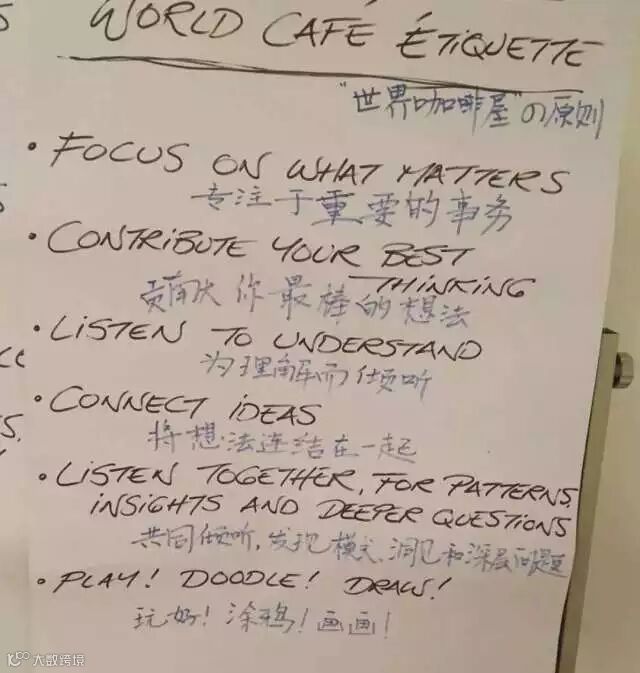 WORLD CAFÉ ÉTIQUETTE
"世界咖啡屋"の原则
• FOCUS ON WHAT MATTERS
专注于重要的事务
• CONTRIBUTE YOUR BEST
THINKING
贡献你最棒的想法
• LISTEN TO UNDERSTAND
为理解而倾听
• CONNECT IDEAS
将想法连结在一起
• LISTEN TOGETHER, FOR PATTERNS,
INSIGHTS AND DEEPER QUESTIONS
共同倾听,发现模式、洞见和深层问题
• PLAY! DOODLE! DRAW!
玩好!涂鸦!画画!
大数跨境